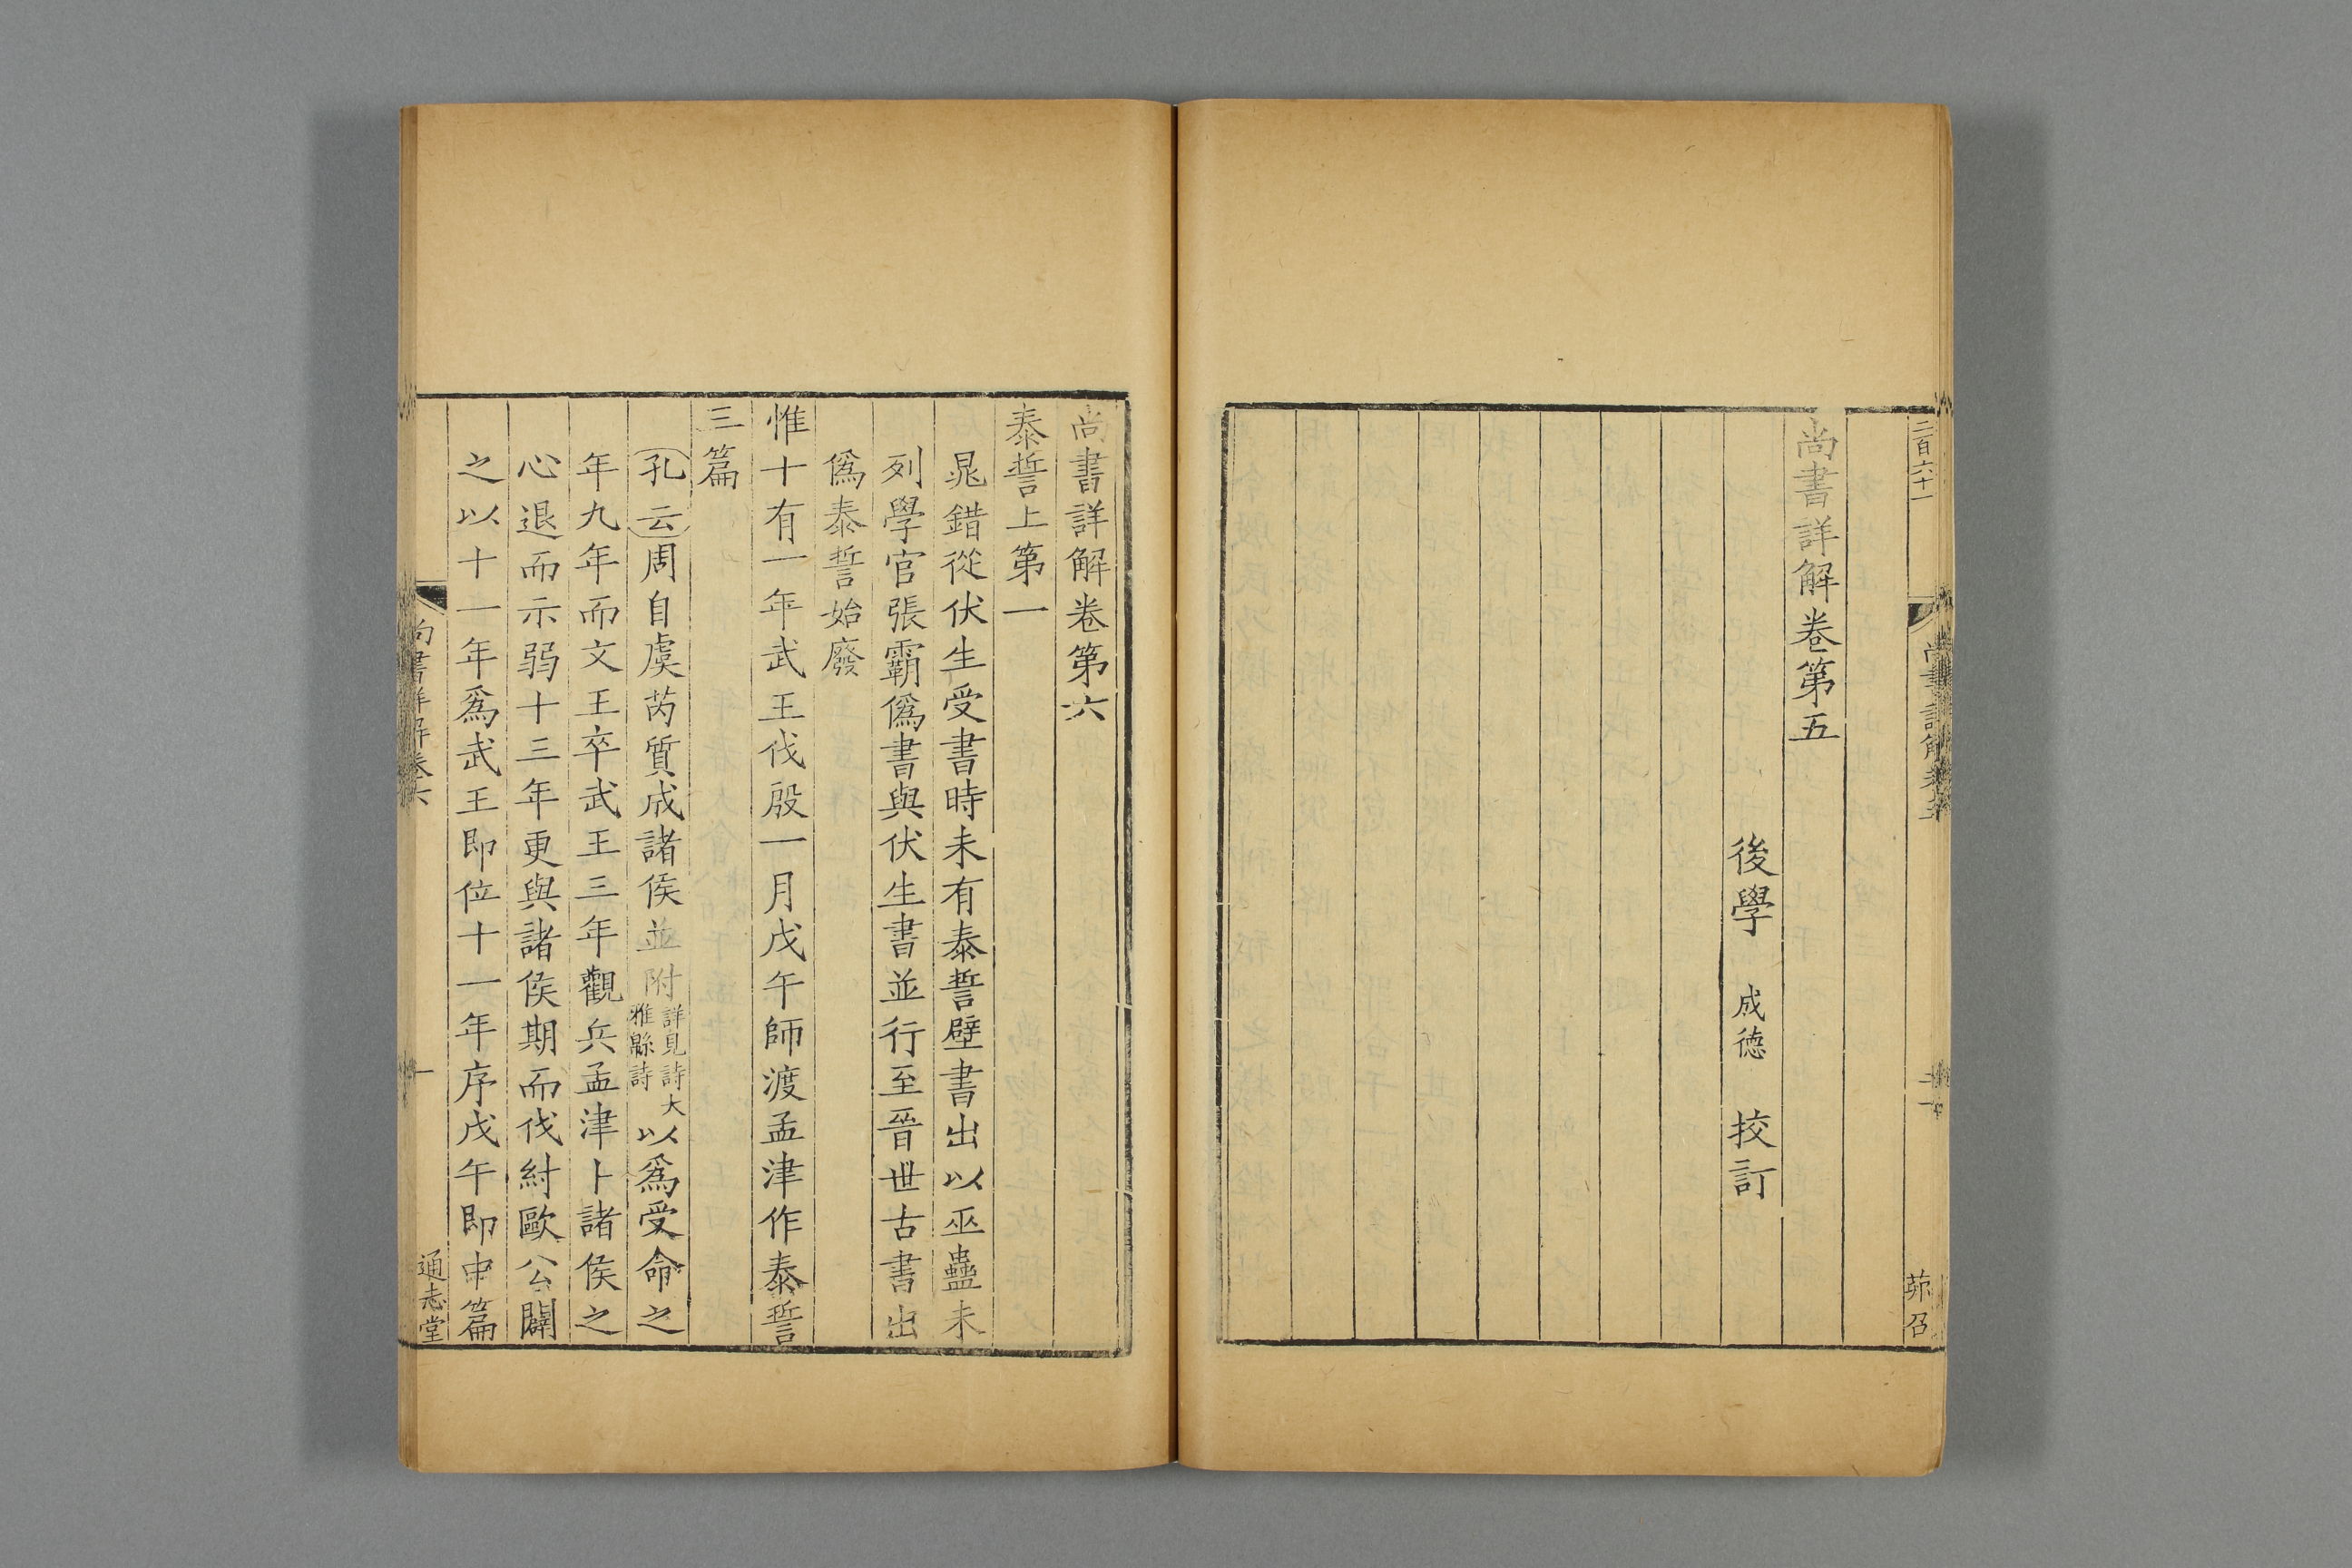 二百六十一
尚書詳解卷五
二十
茆召
尚書詳解卷第五
後學 成德 挍訂
尚書詳解卷第六
泰誓上第一
晁錯從伏生受書時未有泰誓壁書出以巫蠱未
列學官張霸僞書與伏生書並行至晉世古書出
僞泰誓始廢
惟十有一年武王伐殷一月戊午師渡孟津作泰誓
三篇
孔云周自虞芮質成諸侯並附詳見詩大雅緜詩以爲受命之
年九年而文王卒武王三年觀兵孟津卜諸侯之
心退而示弱十三年更與諸侯期而伐紂歐公闢
之以十一年爲武王即位十一年序戊午即中篇
尚書詳解卷六
一
通志堂